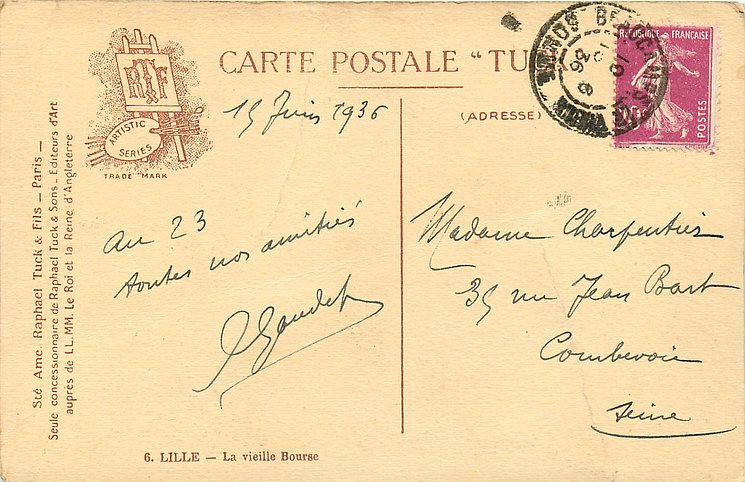 CARTE POSTALE "TU
RTF
ARTISTIC
SERIES
TRADE MARK
15 Juin 1936
(ADRESSE)
REPUBLIQUE FRANÇAISE
POSTES
Au 23
toutes nos amitiés
Madame Charpentier
35 rue Jean Bart
Courbevoie
Seine
Sté Ame. Raphael Tuck & Fils — Paris —
Seule concessionnaire de Raphael Tuck & Sons - Editeurs d'Art
auprès de LL. MM. Le Roi et la Reine d'Angleterre
6. LILLE — La vieille Bourse